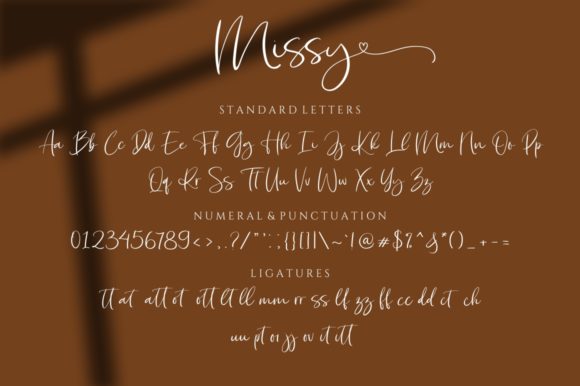 Missy
STANDARD LETTERS
Aa Bb Cc Dd Ee Ff Gg Hh Ii Jj Kk Ll Mm Nn Oo Pp
Qq Rr Ss Tt Uu Vv Ww Xx Yy Zz
NUMERAL & PUNCTUATION
0123456789<>,.?/"':;{}[]|\~`!@#$%^&*()_+-=
LIGATURES
tt at att ot ott lt ll mm rr ss lf zz ff cc dd ct ch
uu pt or jj ov it itt